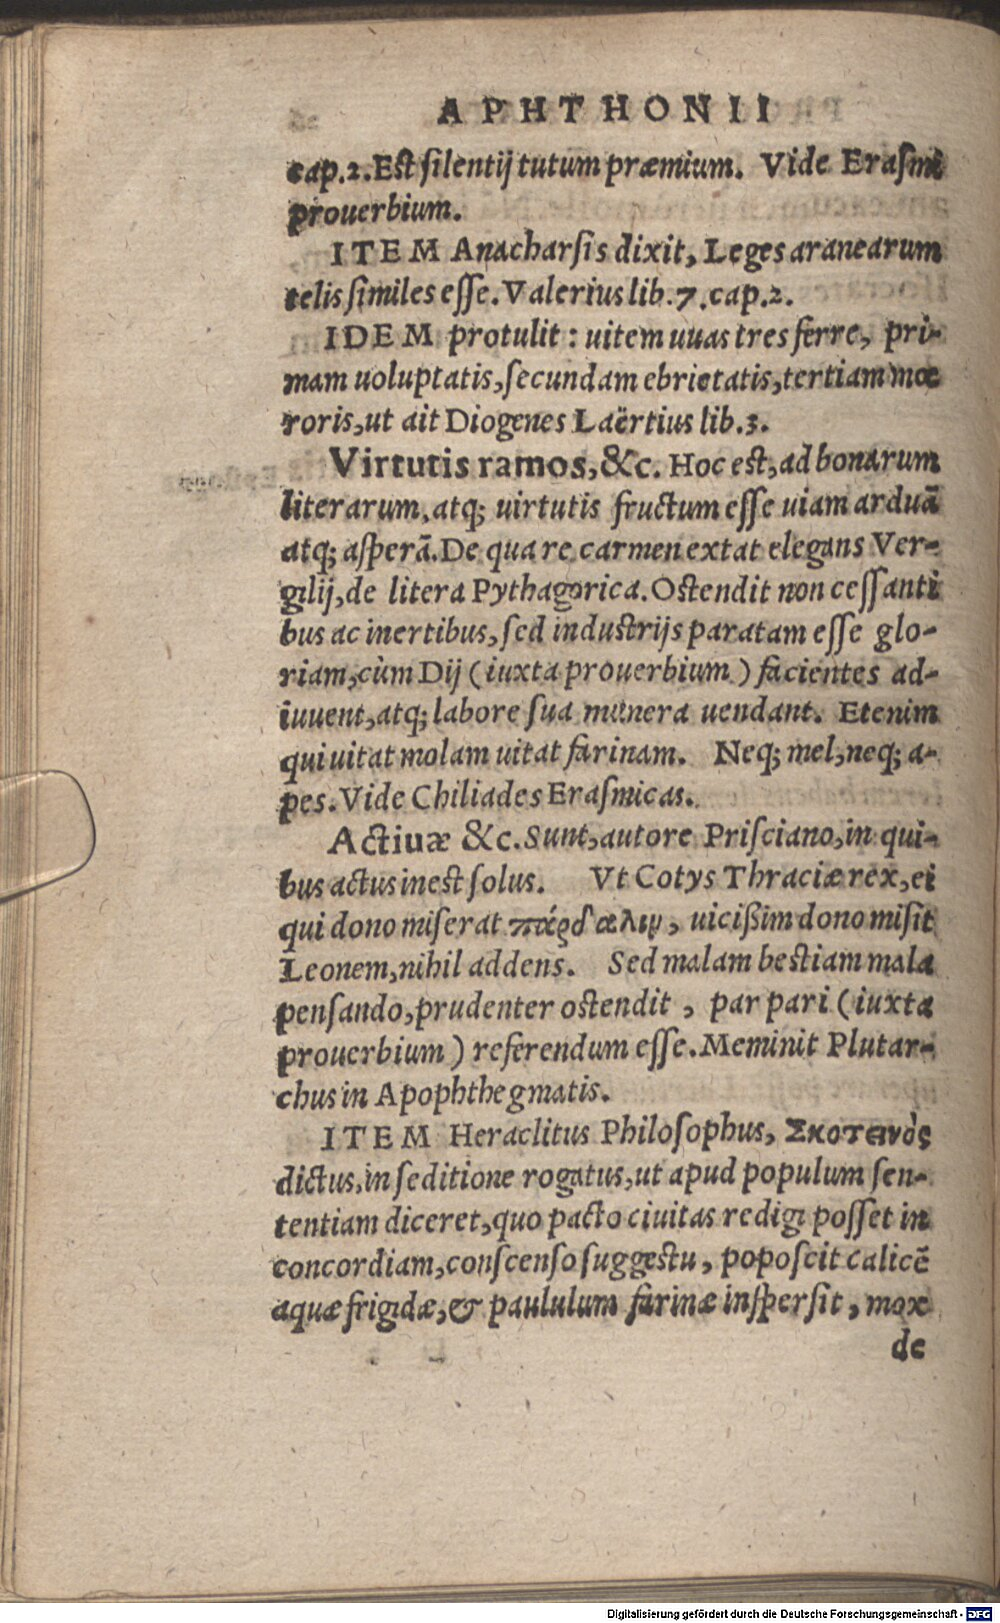 APHTHONII
cap.2. Est silentij tutum præmium. Vide Erasmi
prouerbium.
ITEM Anacharsis dixit, Leges aranearum
telis similes esse. Valerius lib.7.cap.2.
IDEM protulit: uitem uuas tres ferre, pri-
mam uoluptatis, secundam ebrietatis, tertiam mœ
roris, ut ait Diogenes Laërtius lib.3.
Virtutis ramos, &c. Hoc est, ad bonarum
literarum, atq; uirtutis fructum esse uiam arduā
atq; asperā. De qua re carmen extat elegans Ver-
gilij, de litera Pythagorica. Ostendit non cessanti
bus ac inertibus, sed industrijs paratam esse glo-
riam, cùm Dij (iuxta prouerbium) facientes ad-
iuuent, atq; labore sua munera uendant. Etenim
qui uitat molam uitat farinam. Neq; mel, neq; a-
pes. Vide Chiliades Erasmicas.
Actiuæ &c. Sunt, autore Prisciano, in qui-
bus actus inest solus. Vt Cotys Thraciæ rex, ei
qui dono miserat πάρδαλιν, uicißim dono misit
Leonem, nihil addens. Sed malam bestiam mala
pensando, prudenter ostendit, par pari (iuxta
prouerbium) referendum esse. Meminit Plutar-
chus in Apophthegmatis.
ITEM Heraclitus Philosophus, Σκοτεινὸς
dictus, in seditione rogatus, ut apud populum sen-
tentiam diceret, quo pacto ciuitas redigi posset in
concordiam, conscenso suggestu, poposcit calicē
aquæ frigidæ, & paululum farinæ inspersit, mox
de
Digitalisierung gefördert durch die Deutsche Forschungsgemeinschaft - DFG